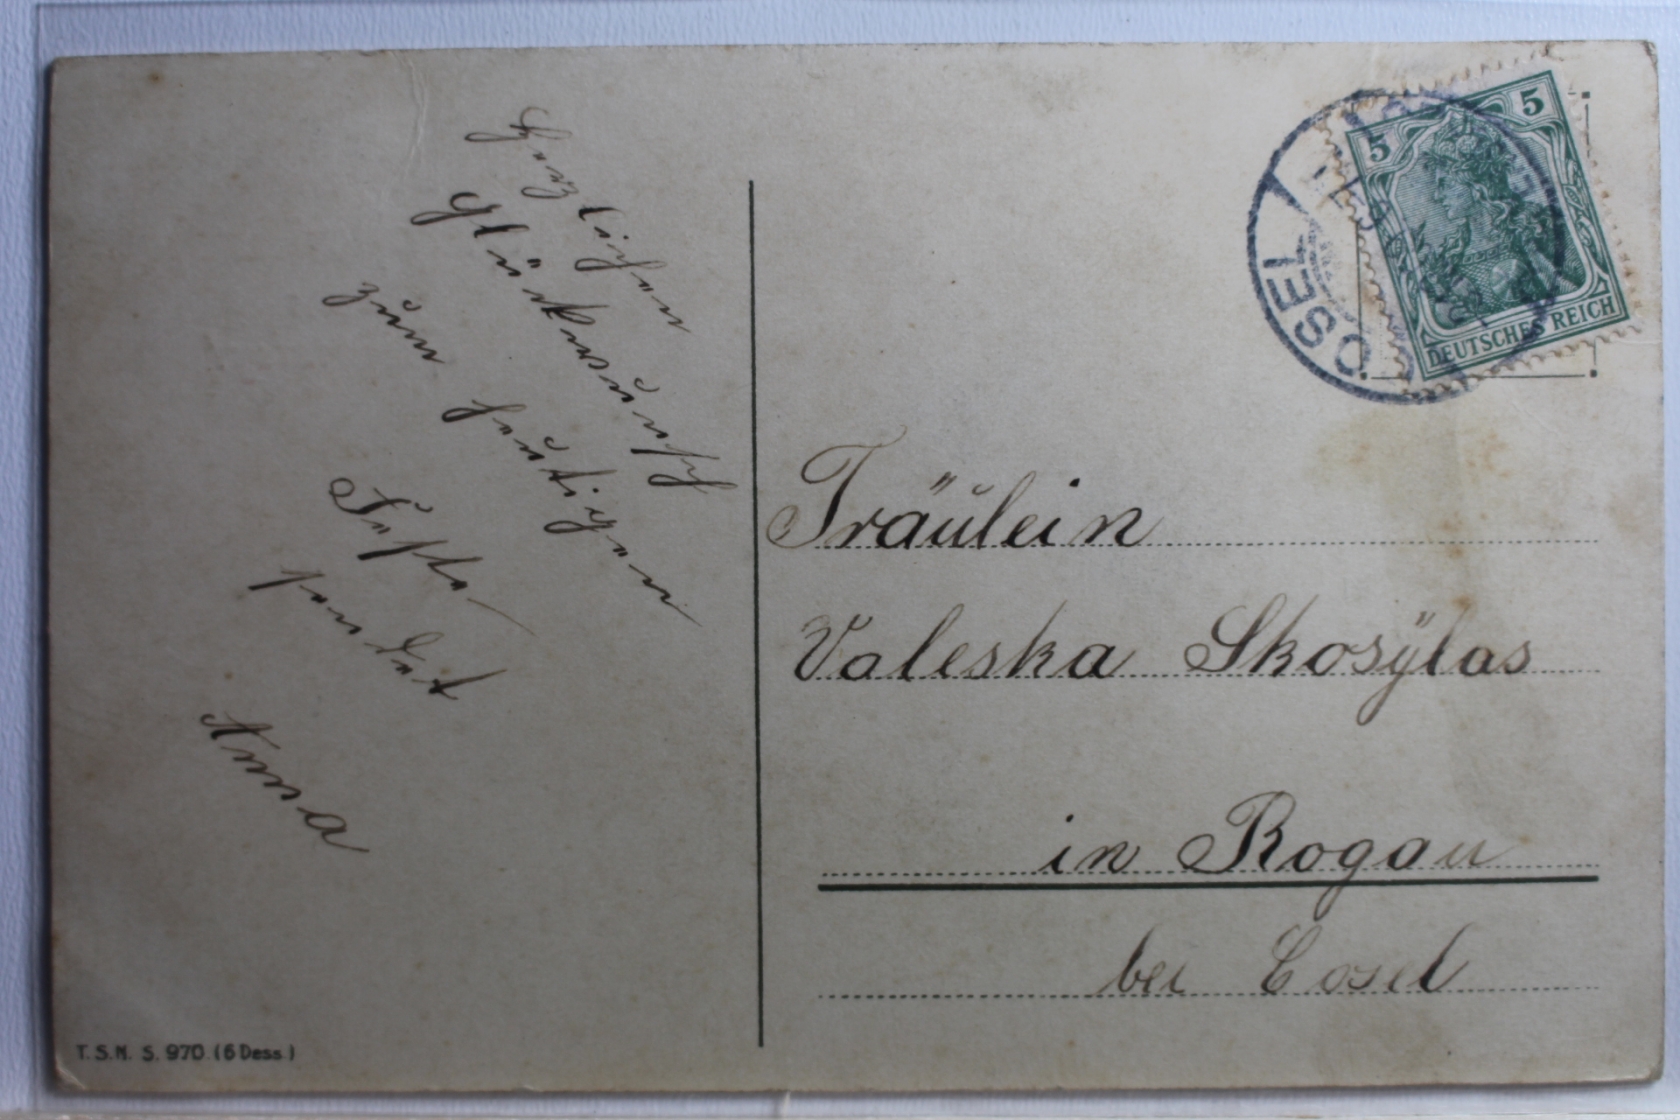 Herzlichen
Glückwunsch
zum heutigen
Feste
sendet
Anna
T.S.N. S. 970 (6 Dess.)
5 5
DEUTSCHES REICH
COSEL
Fräulein
Valeska Skosÿlas
in Rogau
bei Cosel